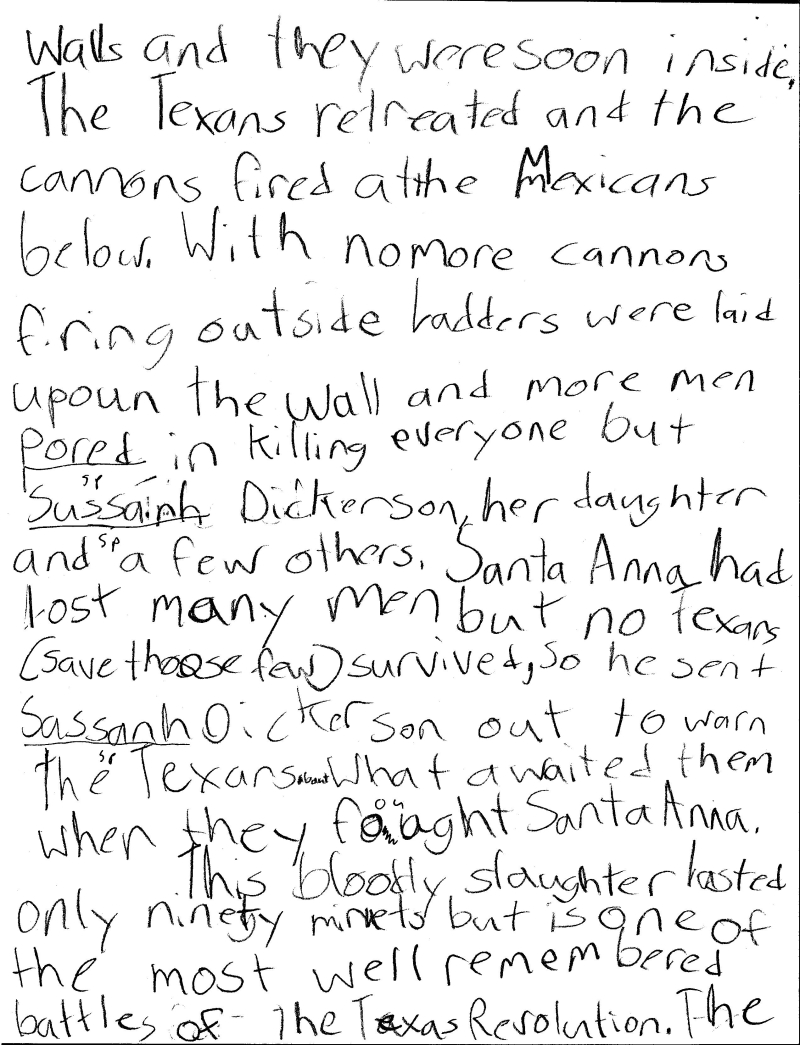 Walls and they were soon inside,
The Texans retreated and the
cannons fired at the Mexicans
below. With no more cannons
firing outside ladders were laid
upoun the wall and more men
Pored in killing everyone but
sp
Sussainh Dickerson, her daughter
and sp a few others. Santa Anna had
lost many men but no Texans
(save thoose few) survived, so he sent
Sassanh Dickerson out to warn
sp
the Texans about what awaited them
when they foought Santa Anna.
This bloody slaughter lasted
only ninety minets but is one of
the most well remembered
battles of the Texas Revolution. The